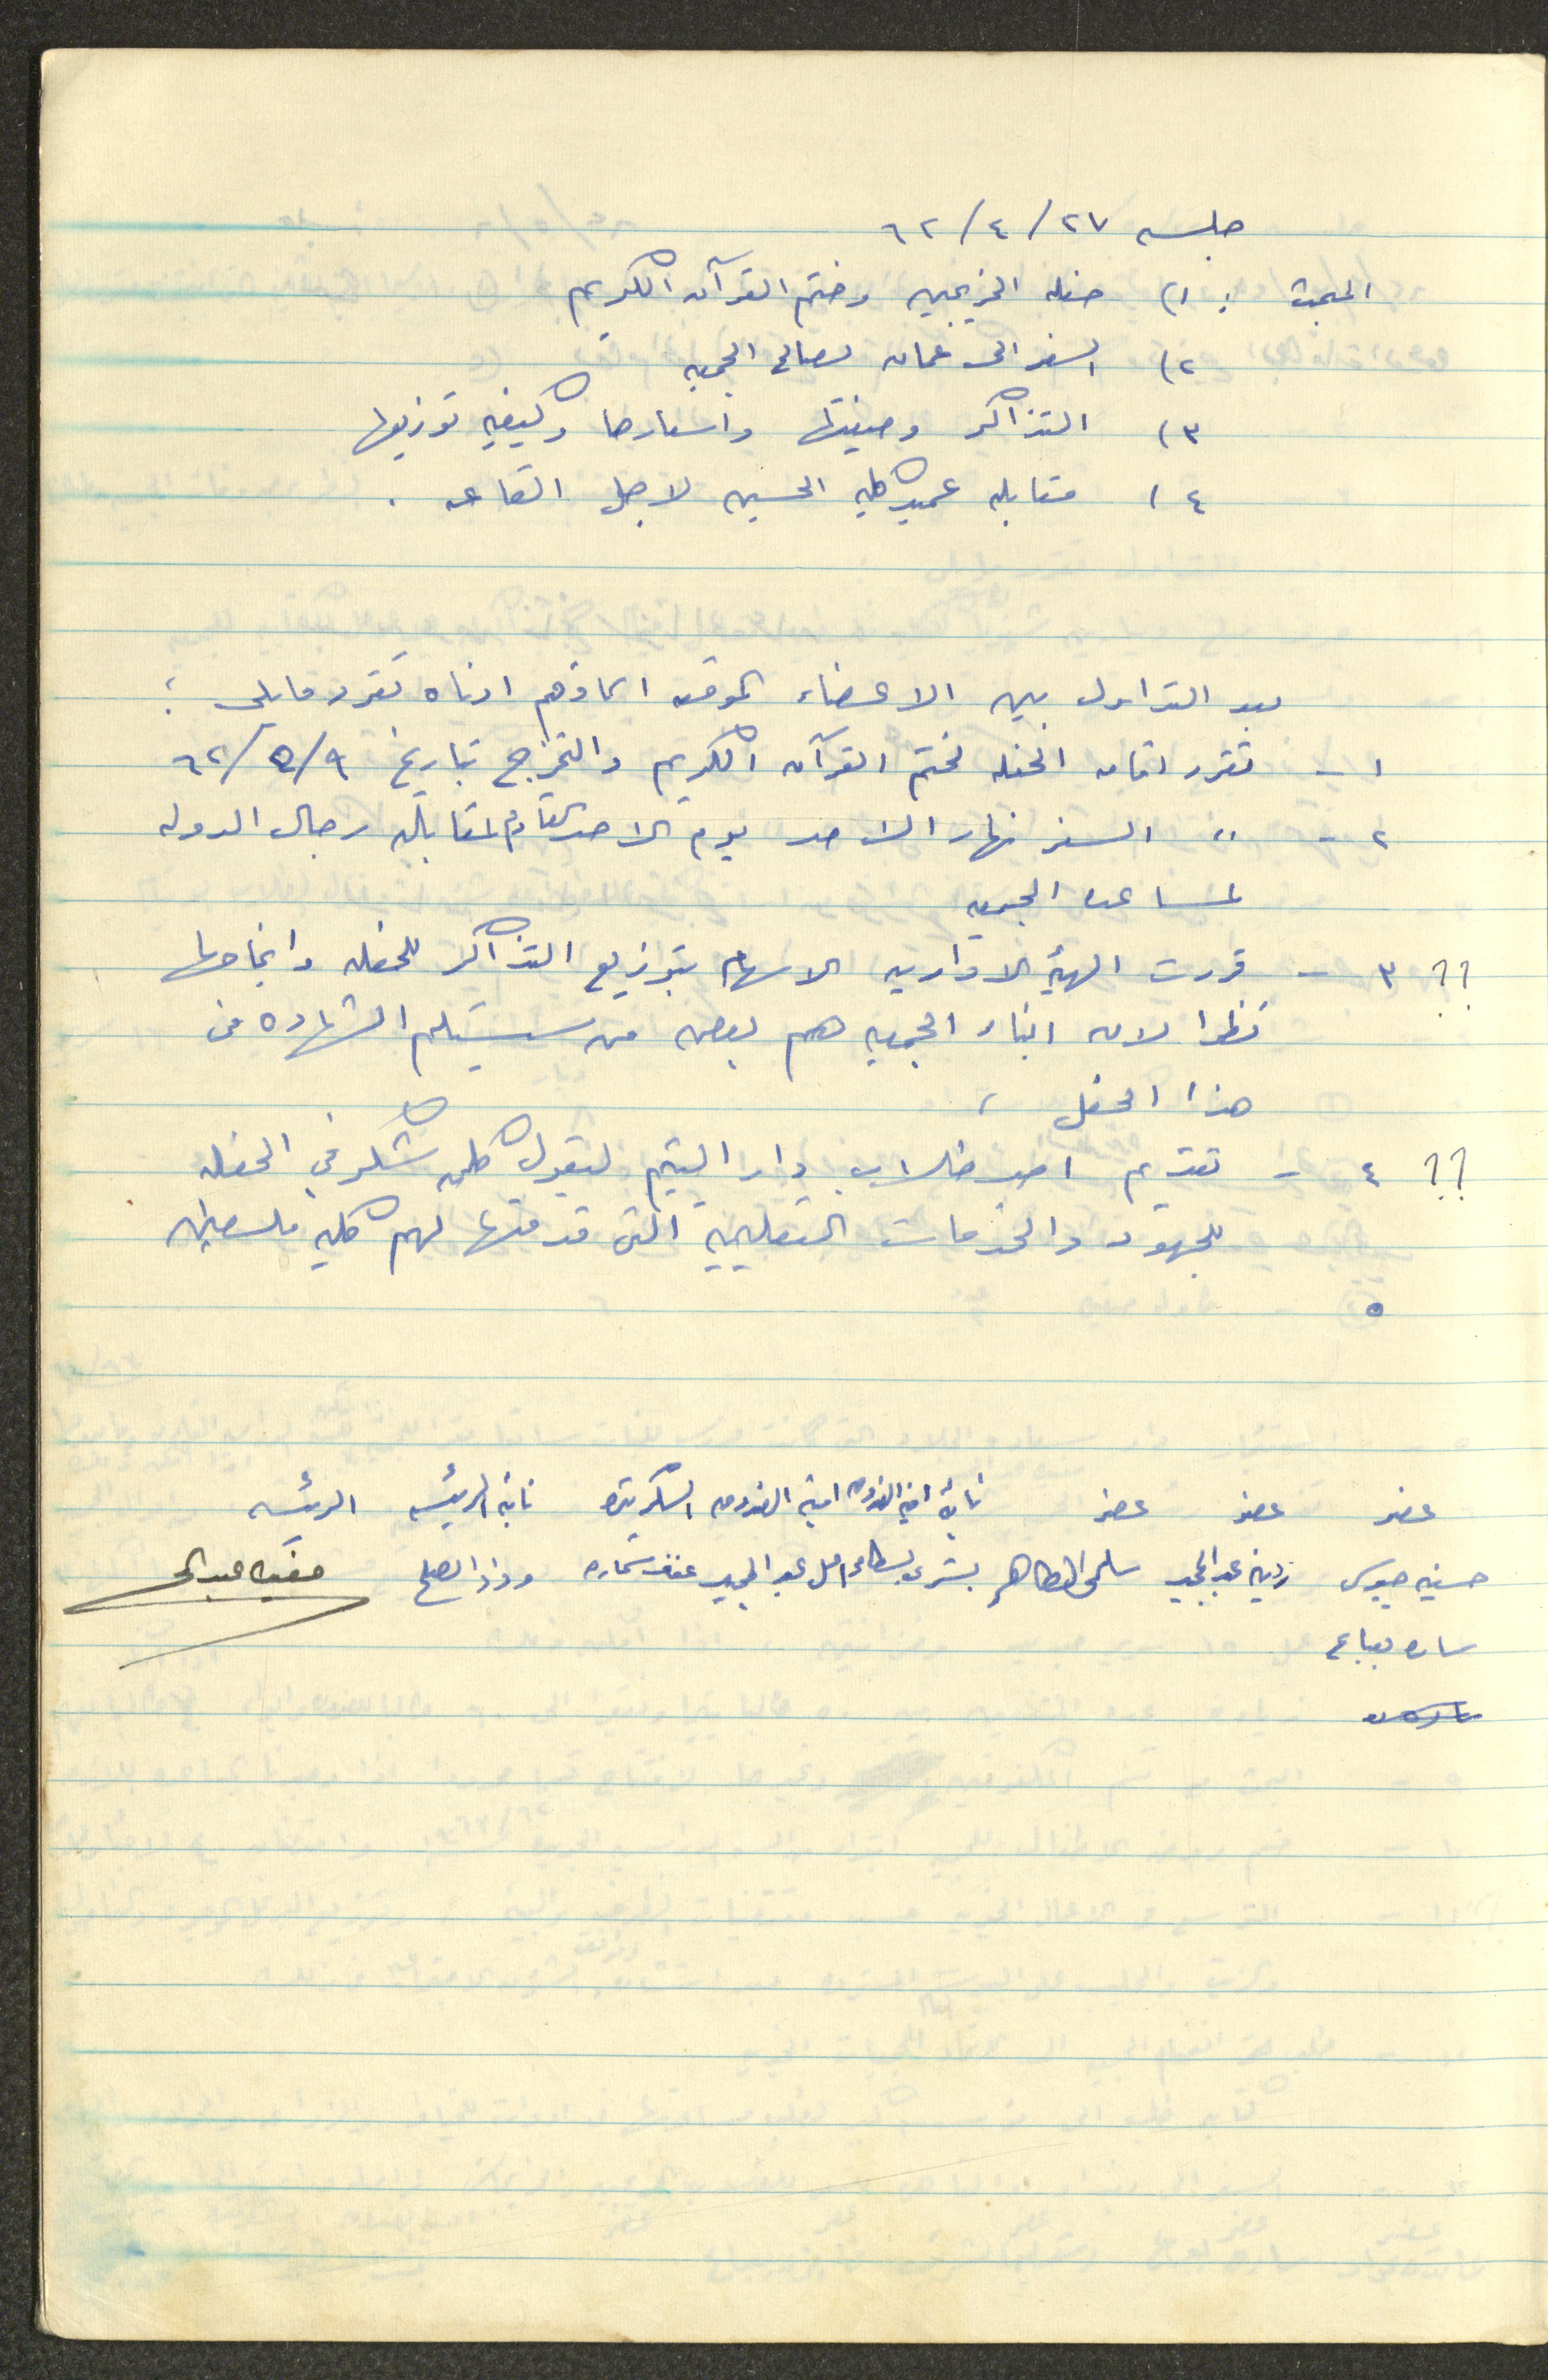 جلسه ٢٧/٤/٦٢
المبحث : ١) حفله الخريجين وختم القرآن الكريم
٢) السفر الى عمان لصالح الجمعيه
٣) التذاكر وصيغتها واسعارها وكيفيه توزيعها
٤) مقابله عميد كليه الحسين لاجل القاعه .
بعد التداول بين الاعضاء الموقعه اسماؤهم ادناه تقرر مايلي :
١ - تقرر اقامه الحفله لختم القرآن الكريم والتخرج بتاريخ ٩/٥/٦٢
٢ - " السفر نهار الاحد يوم الاحد القادم لمقابله رجال الدوله
لمساعده الجمعيه
؟؟ ٣ - قررت الهيئه الاداريه الاسهام بتوزيع التذاكر للحفله وانجاحها
نظرا لان ابناء الجمعيه هم بعض من سيتسلم الشهاده في
هذا الحفل ،
؟؟ ٤ - تقديم احد طلاب دار اليتيم ليقول كلمه شكر في الحفله
للجهود والخدمات التعليميه التي قدمتها لهم كليه فلسطين
٥
عضو عضو عضو نائبة امينة الصندوق امينة الصندوق السكرتيره نائبة الرئيسه الرئيسه
حسنيه جيوسي زينه عبد المجيد سلمى الطاهر بشرى بسطامي امل عبد المجيد عفاف سماره وداد الصلح
ساره بعباع